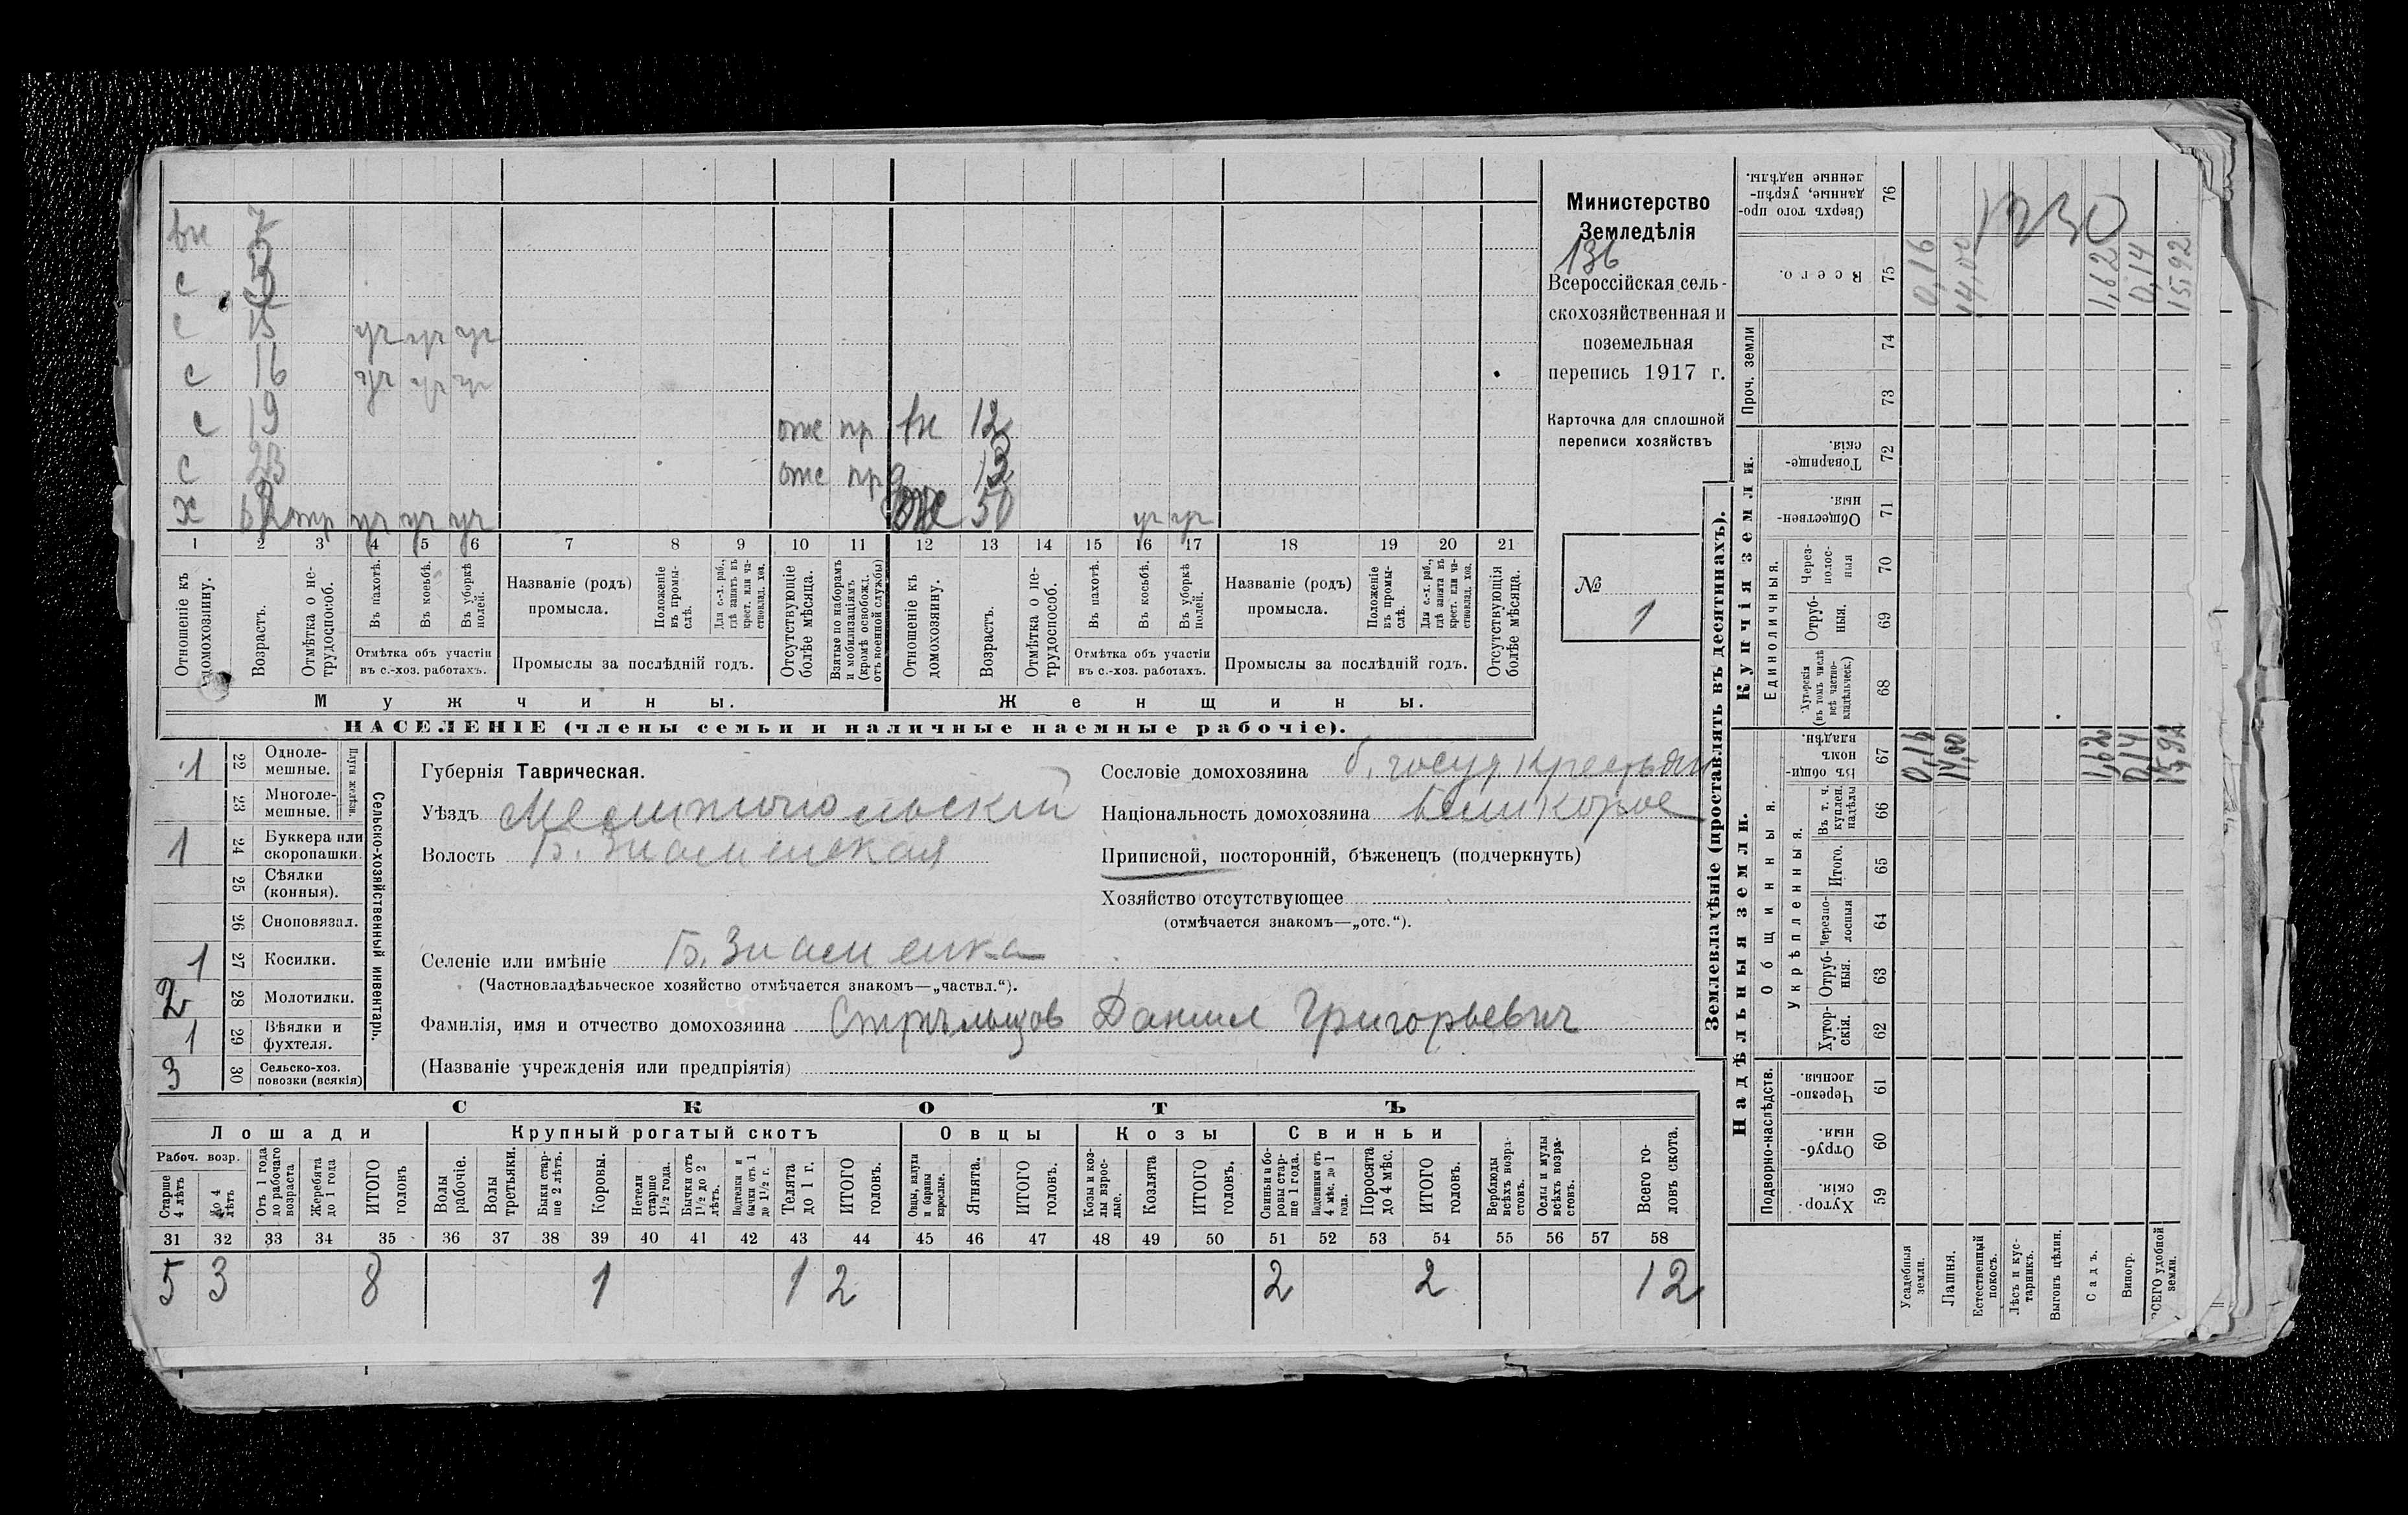 вн 7
с 13
с 15 уч уч уч
с 16 уч уч уч
с 19 отс пр вн 12
с 23 отс пр д 13
х тр уч уч уч ж 50 уч уч
1 2 3 4 5 6 7 8 9 10 11 12 13 14 15 16 17 18 19 20 21
Отношеніе къ домохозяину.
Возрастъ.
Отмѣтка о нетрудоспособ.
Въ пахотѣ.
Въ косьбѣ.
Въ уборкѣ полей.
Отмѣтка объ участіи въ с.-хоз. работахъ.
Названіе (родъ) промысла.
Положеніе въ промыслѣ.
Для с.-х. раб., гдѣ занятъ въ крест. или частновлад. хоз.
Промыслы за послѣдній годъ.
Отсутствующіе болѣе мѣсяца.
Взятые по наборамъ и мобилизаціямъ (кромѣ освобожд. отъ военной службы)
Отношеніе къ домохозяину.
Возрастъ.
Отмѣтка о нетрудоспособ.
Въ пахотѣ.
Въ косьбѣ.
Въ уборкѣ полей.
Отмѣтка объ участіи въ с.-хоз. работахъ.
Названіе (родъ) промысла.
Положеніе въ промыслѣ.
Для с.-х. раб., гдѣ занята въ крест. или частновлад. хоз.
Промыслы за послѣдній годъ.
Отсутствующія болѣе мѣсяца.
Мужчины. Женщины.
НАСЕЛЕНІЕ (члены семьи и наличные наемные рабочіе).
Министерство
Земледѣлія
136
Всероссійская сель-
скохозяйственная и
поземельная
перепись 1917 г.
Карточка для сплошной
переписи хозяйствъ
№
1
1 22 Одноле-мешные.
23 Многоле-мешные.
Плуги желѣзн.
1 24 Буккера или скоропашки.
25 Сѣялки (конныя).
26 Сноповязал.
1 27 Косилки.
2 28 Молотилки.
1 29 Вѣялки и фухтеля.
3 30 Сельско-хоз. повозки (всякія)
Сельско-хозяйственный инвентарь.
Губернія Таврическая.
Уѣздъ Мелитопольскій
Волость Б. Знаменская
Селеніе или имѣніе Б. Знаменка
(Частновладѣльческое хозяйство отмѣчается знакомъ—„частвл.“).
Фамилія, имя и отчество домохозяина Стрѣльцов Данил Григорьевич
(Названіе учрежденія или предпріятія)
Сословіе домохозяина б. госуд крестьян
Національность домохозяина великорос
Приписной, посторонній, бѣженецъ (подчеркнуть)
Хозяйство отсутствующее
(отмѣчается знакомъ—„отс.“).
СКОТЪ
Лошади Крупный рогатый скотъ Овцы Козы Свиньи
Рабоч. возр.
Старше 4 лѣтъ
До 4 лѣтъ
Отъ 1 года до рабочаго возраста
Жеребята до 1 года
ИТОГО головъ
Волы рабочіе.
Волы третьяки.
Быки старше 2 лѣтъ.
Коровы.
Нетели старше 1½ года.
Бычки отъ 1½ до 2 лѣтъ.
Подтелки и бычки отъ 1 до 1½ г.
Телята до 1 г.
ИТОГО головъ.
Овцы, валухи и бараны взрослые.
Ягнята.
ИТОГО головъ.
Козы и козлы взрослые.
Козлята
ИТОГО головъ.
Свиньи и боровы старше 1 года.
Подсвинки отъ 4 мѣс. до 1 года.
Поросята до 4 мѣс.
ИТОГО головъ.
Верблюды всѣхъ возрастовъ.
Ослы и мулы всѣхъ возрастовъ.
Всего головъ скота.
31 32 33 34 35 36 37 38 39 40 41 42 43 44 45 46 47 48 49 50 51 52 53 54 55 56 57 58
5 3 8 1 1 2 2 2 12
Землевладѣніе (проставлять въ десятинахъ).
Надѣльныя земли. Купчія земли. Проч. земли
Подворно-наслѣдств.
Общинныя.
Укрѣпленныя.
Единоличныя.
Сверхъ того проданные, укрѣпленные надѣлы. 76
1230
Всего. 75 0,16 14,00 1,62 0,14 15,92
74
73
Товарищескія. 72
Общественныя. 71
Черезполосныя 70
Отрубныя. 69
Хуторскія (въ томъ числѣ всѣ частновладѣльческ.) 68
Въ общинномъ владѣн. 67 0,16 14,00 1,62 0,14 15,92
Въ т. ч. куплен. надѣлы 66
Итого. 65
Черезполосныя 64
Отрубныя. 63
Хуторскія. 62
Черезполосныя. 61
Отрубныя. 60
Хуторскія. 59
Усадебныя земли.
Пашня.
Естественный покосъ.
Лѣсъ и кустарникъ.
Выгонъ цѣлин.
Садъ.
Виногр.
ВСЕГО удобной земли.